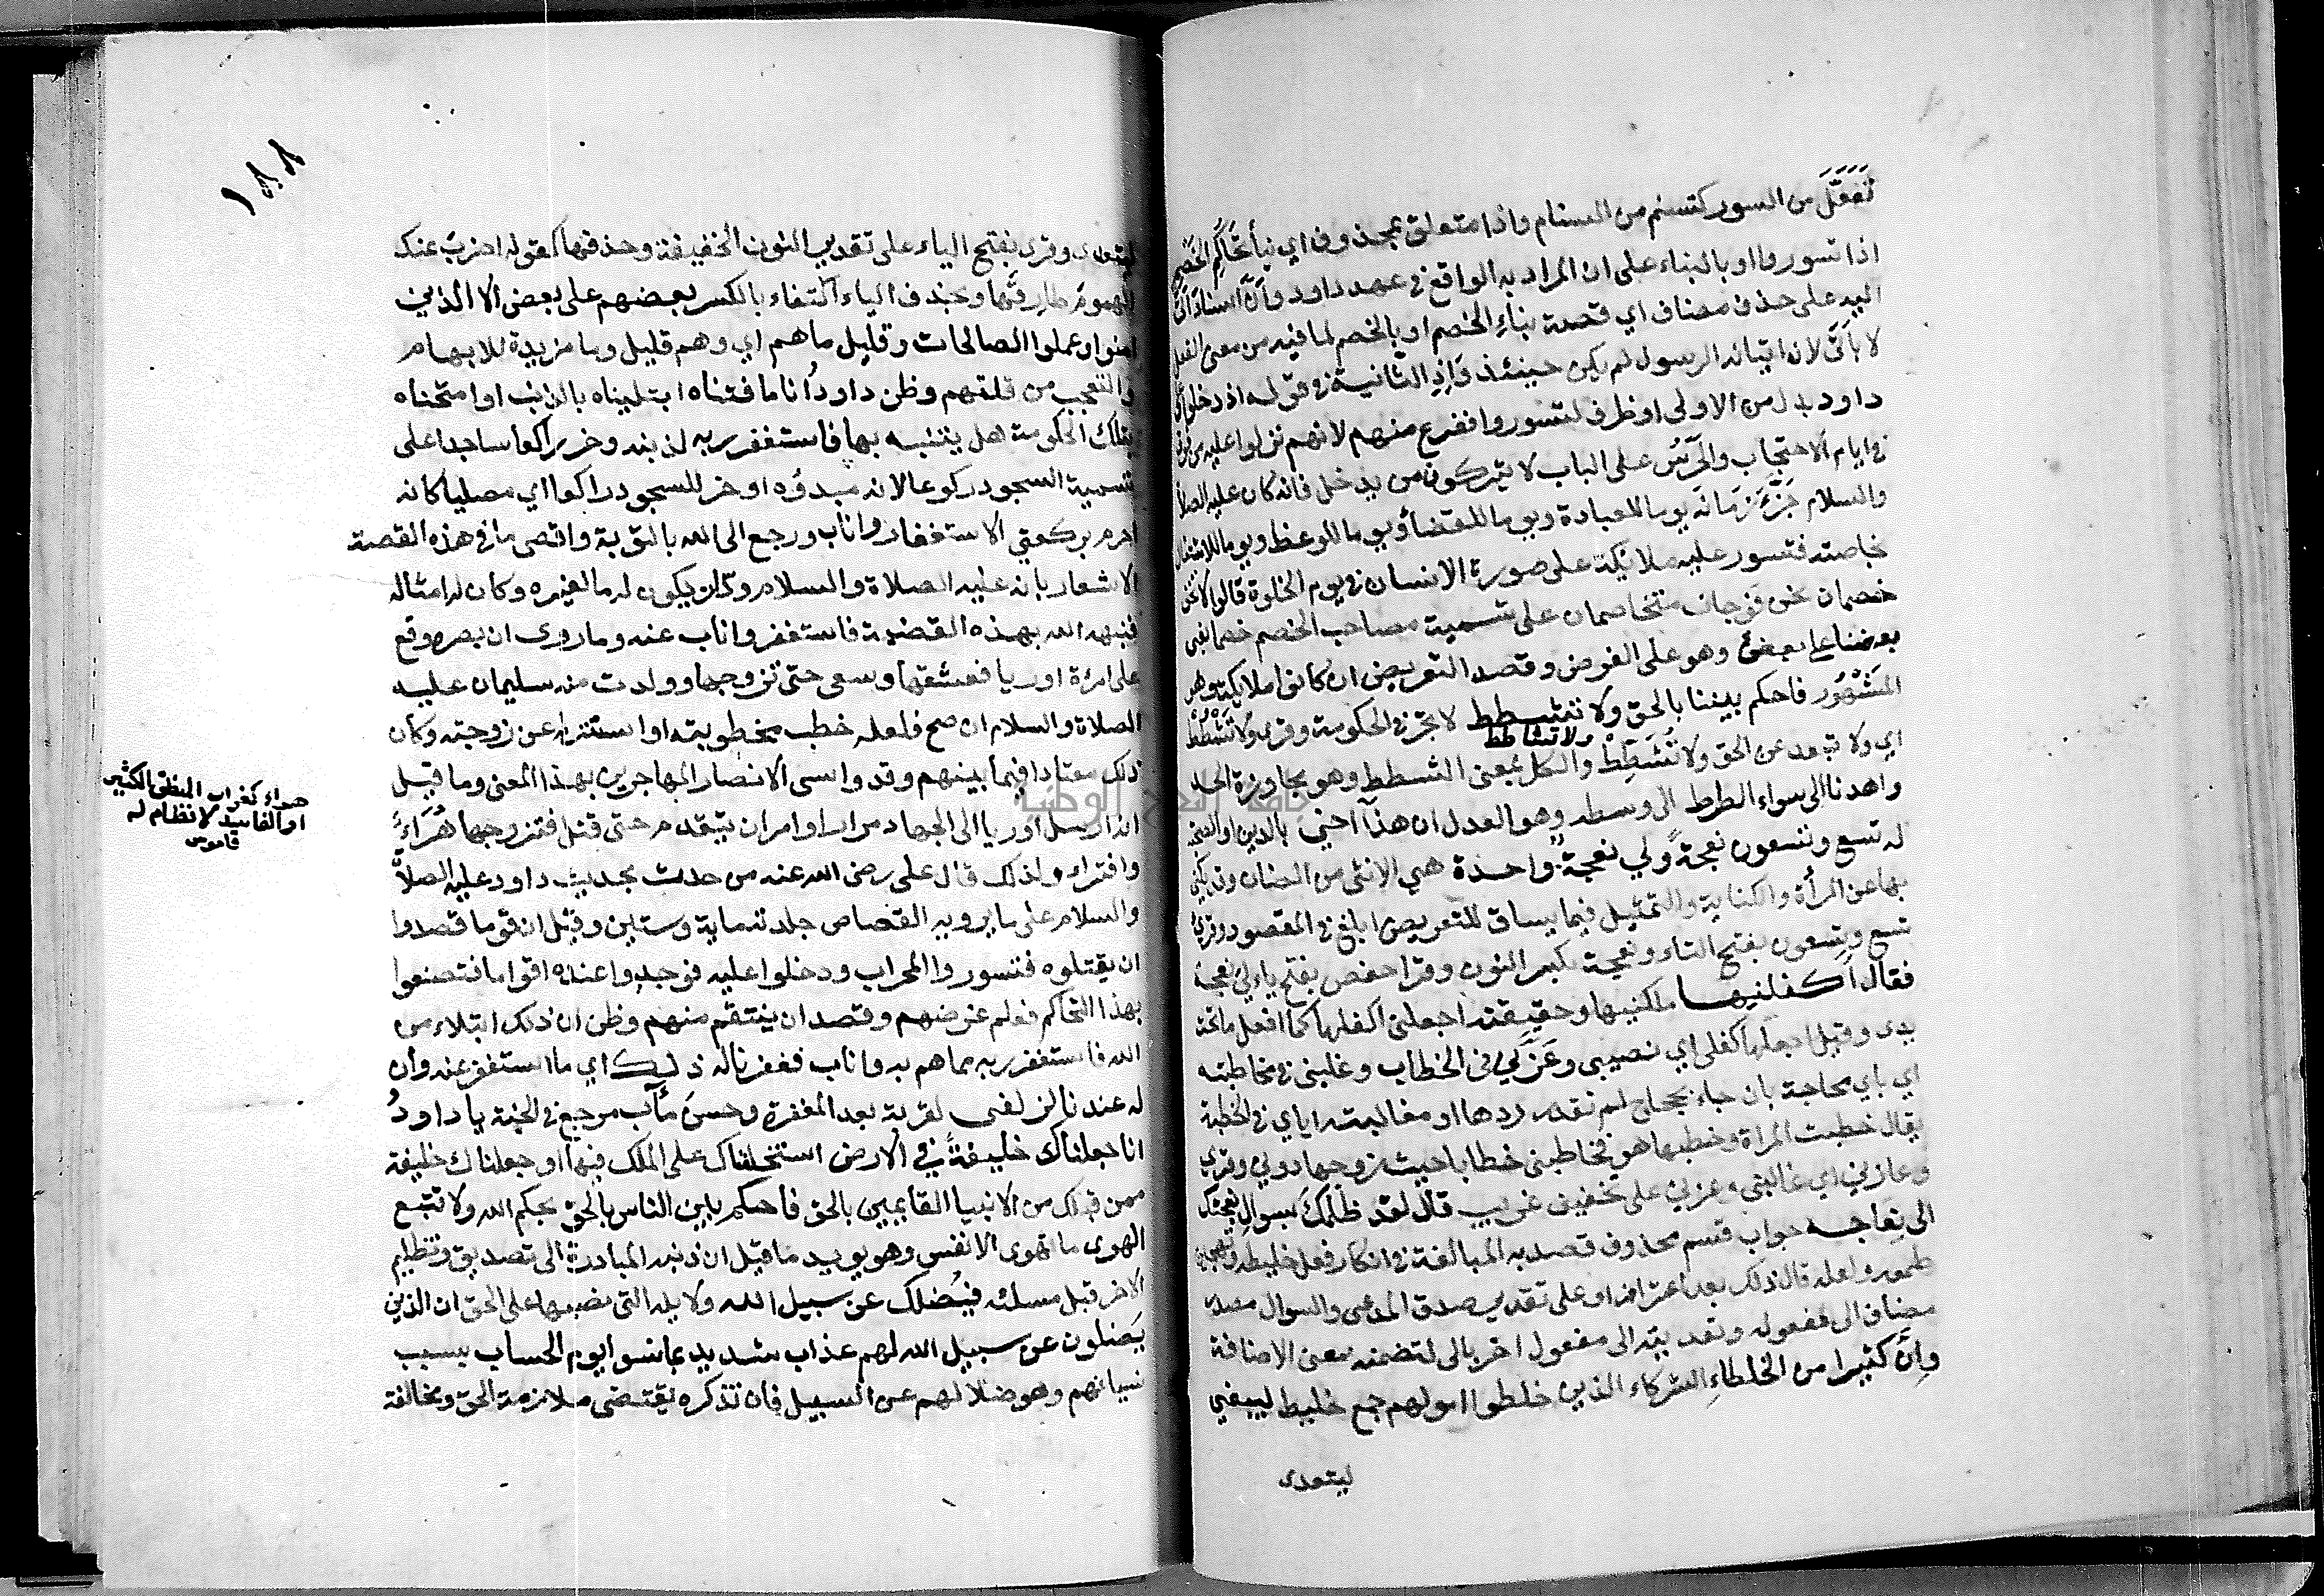 تَفَعَّلَ من السور كتسنم من السنام واذا متعلق بمحذوف اي نبأ تَحَاكُمِ الخَصْمِ
اذا تسوروا او بالنباء على ان المراد به الواقع في عهد داود وأنَّ اسناد اتى
اليه على حذف مضاف اي قصة نباء الخصم او بالخصم لما فيه من معنى الفعل
لا باَتَى لان اتيانه الرسول لم يكن حينئذ وَاِذِ الثانية في قوله اذ دخلوا على
داود بدل من الاولى او ظرف لتسوروا ففزع منهم لانهم نزلوا عليه من فوق
في ايام الاحتجاب والحَرَسُ على الباب لا يتركون من يدخل فانه كان عليه الصلاة
والسلام جَزَّءَ زَمَانَه يوما للعبادة ويوما للقضاء ويوما للوعظ ويوما للاشتغال
بخاصته فتسور عليه ملائكة على صورة الانسان في يوم الخلوة قالوا لا تخف
خصمان نحن فوجان متخاصمان على تسمية مصاحب الخصم خصما بغى
بعضنا على بعض وهو على الفرض وقصد التعريض ان كانوا ملايكة وهو
المَشْهُور فاحكم بيننا بالحق ولا تشطط لا تجر في الحكومة وقرئ ولا تَشْطُطْ
ولا تشاطط
اي ولا تبعد عن الحق ولا تُشَطِّطْ والكل بمعنى الشطط وهو مجاوزة الحد
واهدنا الى سواء الطرط الى وسطه وهو العدل ان هذا اخي بالدين او الصحبة
له تسع وتسعون نعجةً ولي نعجةٌ واحدة هي الانثى من الضان وقد يكنى
بها عن المرأة والكناية والتمثيل فيما يساق للتعريض ابلغ في المقصود وقرئ
تسع وتسعون بفتح التاء ونعجة بكسر النون وقرا حفص بفتح ياء لي نعجة
فقال اكفلنيها ملكنيها وحقيقته اجعلني اكفلها كما اكفل ما تحت
يدي وقيل اجعلها كفلي اي نصيبي وعَزَّنِي في الخطاب وغلبني في مخاطبته
اي باي محاجة بان جاء بحجاج لم نقدر ردها او مغالبته اياي في الخطبة
يقال خطبت المراة وخطبها هو فخاطبني خطابا حيث زوجها دوني وقرئ
وعازني اي غالبني وعزني على تخفيف غريب قال لقد ظلمك بسوال نعجتك
الى نعاجه جواب قسم محذوف قصد به المبالغة في انكار فعل خليطه وتهجين
طمعه ولعله قال ذلك بعد اعترافه او على تقدير صدق المدعى والسوال مصدر
مضاف الى مفعوله وتعديته الى مفعول اخر بالى لتضمنه معنى الاضافة
وإنَّ كثيرا من الخلطاءِ الشركاء الذين خلطوا اموالهم جمع خليط ليبغي
ليتعدى
١٨٨
ليتعدى وقرئ بفتح الياء على تقدير النون الخفيفة وحذفها كقوله اضرب عنك
الهموم طارِقَها وبحذف الياء اكتفاء بالكسر بعضهم على بعض الا الذين
امنوا وعملوا الصالحات وقليل ما هم اي وهم قليل وما مزيدة للابهام
والتعجب من قلتهم وظن داودُ انما فتناه ابتليناه بالذنب او امتحناه
بتلك الحكومة هل يتنبه بها فاستغفر ربه لذنبه وخر راكعا ساجدا على
تسمية السجود ركوعا لانه مبدؤه او خر للسجود راكعا اي مصليا كانه
احرم بركعتي الاستغفار واناب ورجع الى الله بالتوبة واقصى ما في هذه القصة
الاشعار بانه عليه الصلاة والسلام ودّ ان يكون له ما لغيره وكان له امثاله
فنبهه الله بهذه القضية فاستغفر واناب عنه وما روى ان بصره وقع
على امرءة اوريا فعشقها وسعى حتى تزوجها وولدت منه سليمان عليه
الصلاة والسلام ان صح فلعله خطب مخطوبته او استنزله عن زوجته وكان
ذلك معتادا فيما بينهم وقد واسى الانصار المهاجرين بهذا المعنى وما قيل
انه ارسل اوريا الى الجهاد مرارا وامر ان يتقدم حتى قتل فتزوجها هُرَاءٌ
وافتراء ولذلك قال على رضى الله عنه من حدث بحديث داود عليه الصلاة
والسلام على ما يرويه القصاص جلدته ماية وستين وقيل ان قوما قصدوا
ان يقتلوه فتسوروا المحراب ودخلوا عليه فوجدوا عنده اقواما فتصنعوا
بهذا التحاكم فعلم غرضهم وقصد ان ينتقم منهم وظن ان ذلك ابتلاء من
الله فاستغفر ربه مما هم به واناب فغفرنا له ذلك اي ما استغفر عنه وان
له عندنا لزلفى لقربة بعد المغفرة وحسنَ مآب مرجع في الجنة يا داودُ
انا جعلناك خليفةً في الارض استخلفناك على الملك فيها او جعلناك خليفة
ممن قبلك من الانبيا القايمين بالحق فاحكم بين الناس بالحق بحكم الله ولا تتبع
الهوى ما تهوى الانفس وهو يويد ما قيل ان ذنبه المبادرة الى تصديق وتظليم
الاخر قبل مسئلته فيُضلك عن سبيل الله دلايله التي نصبها على الحق ان الذين
يَضلون عن سبيل الله لهم عذاب شديد بما نسوا يوم الحساب بسبب
نسيانهم وهو ضلالهم عن السبيل فان تذكره يقتضى ملازمة الحق ومخالفة
هراء كغراب المنطق الكثير
او الفاسد لا نظام له
قاموس
جامعة النجاح الوطنية